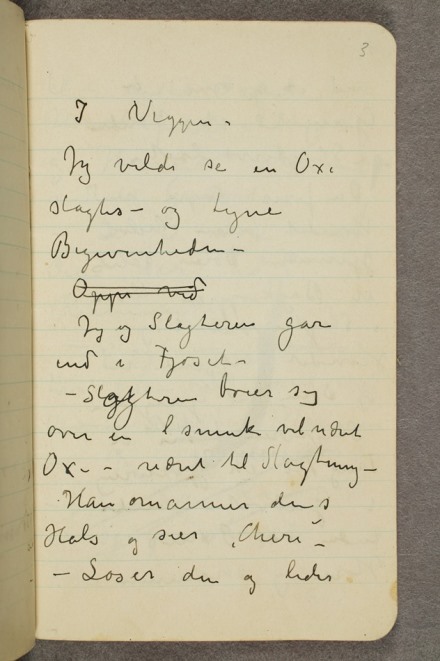 3
I Viggen.
Jeg vilde se en Oxe
slagtes – og tyve
Begivenheden –
Oppe ved
Jeg og Slagteren gaar
ind i Fjøset –
– Slagteren bøier sig
over en smuk velnæret
Ox – næret til Slagtning –
Han omarmer dens
Hals og sier "Cheri" –
– Løser den og leder